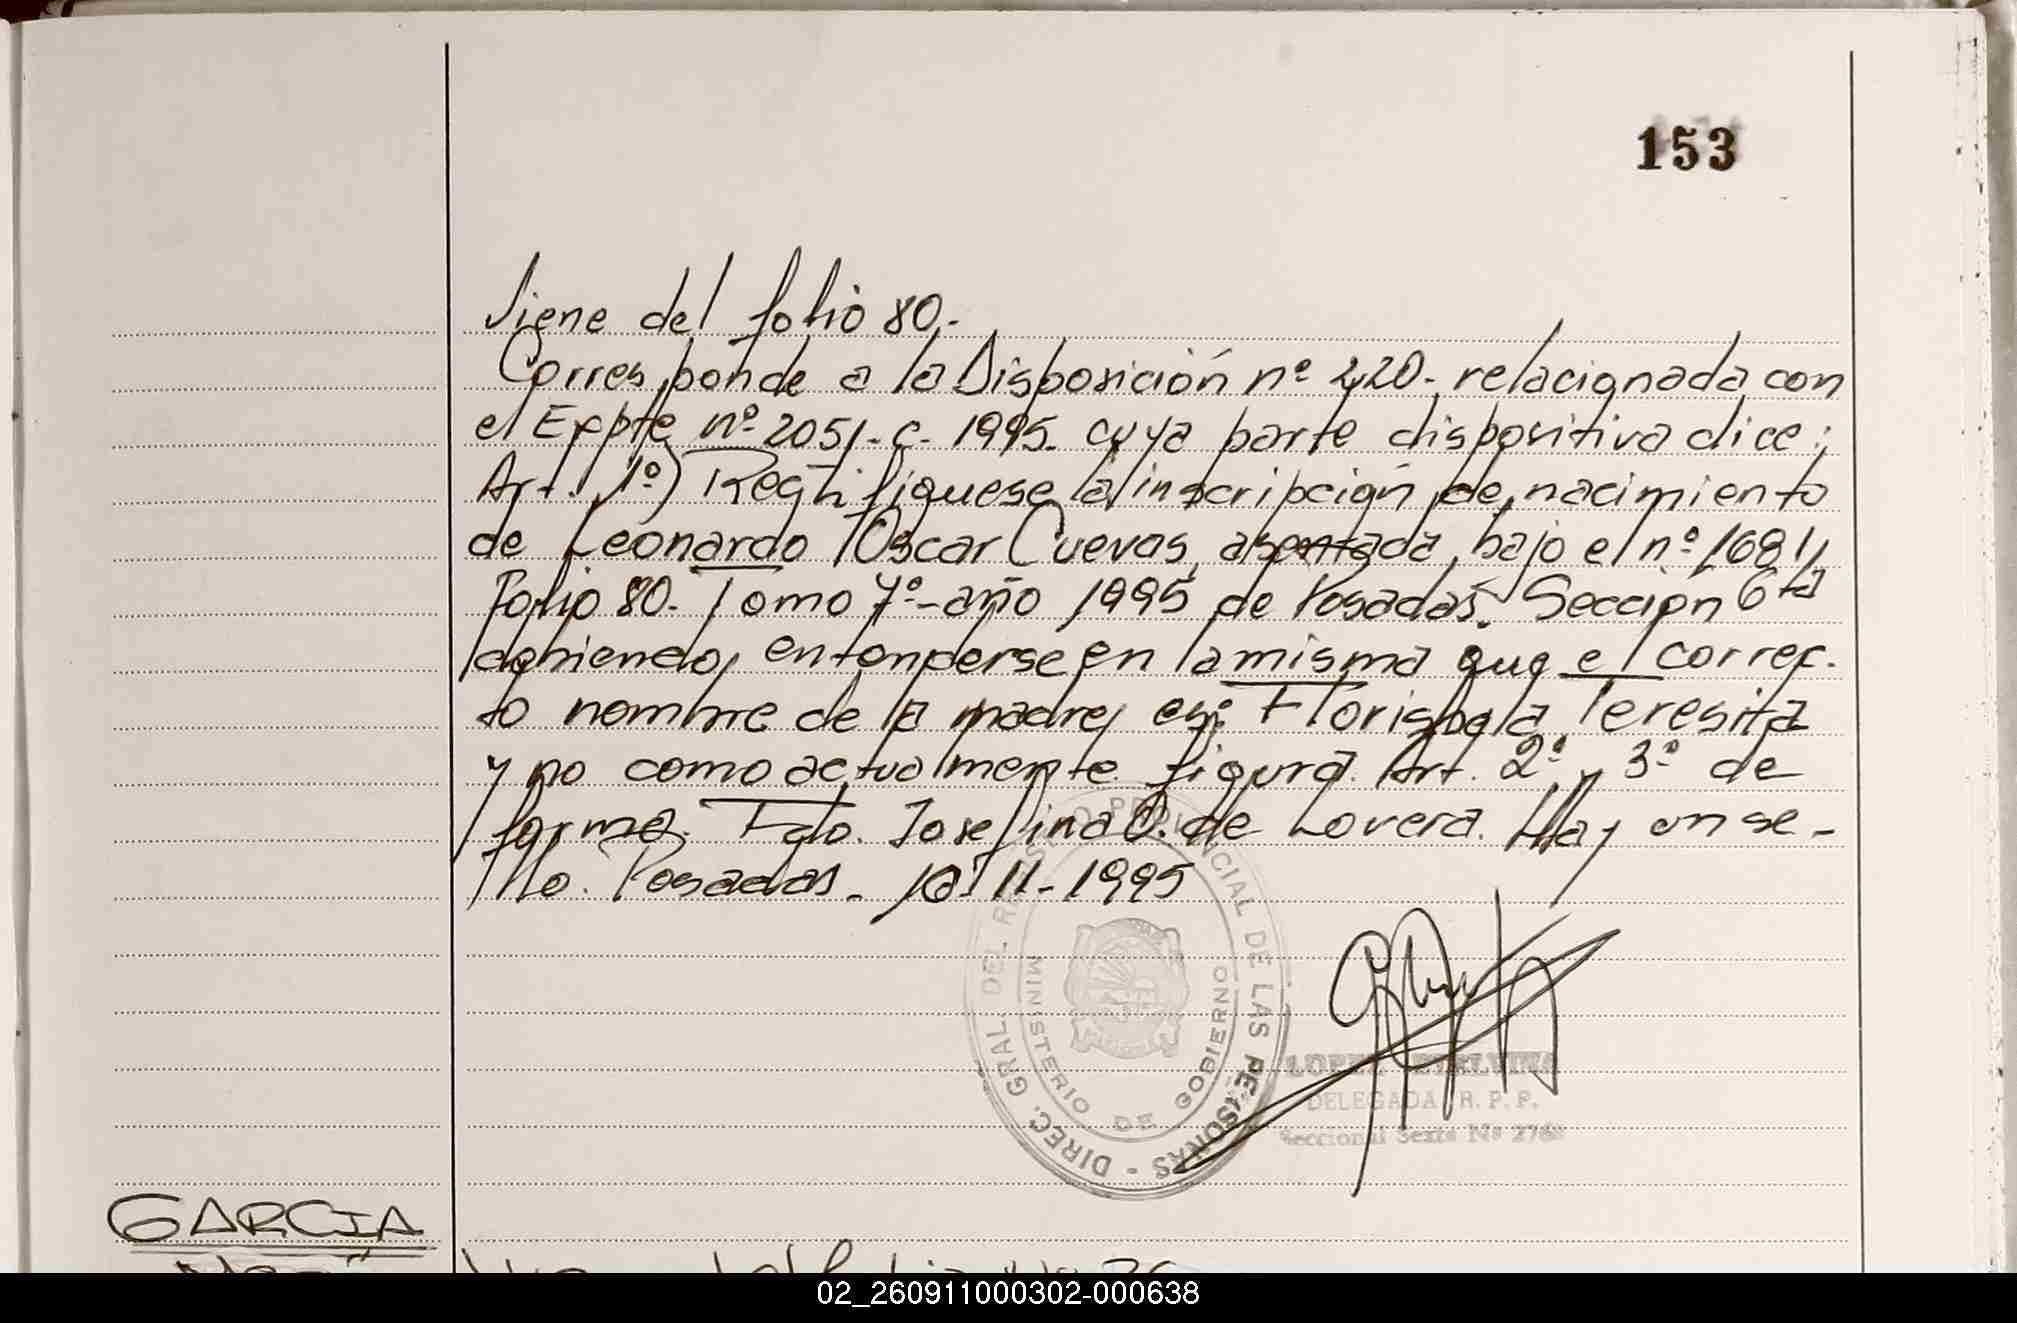 153
Viene del folio 80.-
Corresponde a la Disposición nº 2420.- relacionada con
el Expte nº 2051-C-1995. cuya parte dispositiva dice:
Art. 1º) Rectifíquese la inscripción de nacimiento
de Leonardo Oscar Cuevas, asentada bajo el nº 1681,
Folio 80. Tomo 7º-año 1995 de Posadas. Sección 6ta
debiendo, entenderse en la misma que el correc-
to nombre de la madre, es: Florisbela Teresita
y no como actualmente figura. Art. 2º y 3º de
forma. Fdo. Josefina O. de Lovera. Hay un se-
llo. Posadas. 10-11-1995
DIREC. GRAL. DEL REGISTRO PROVINCIAL DE LAS PERSONAS -
MINISTERIO DE GOBIERNO
LOPEZ ETELVINA
DELEGADA R. P. P.
Seccional Sexta Nº 276
GARCIA
02_260911000302-000638